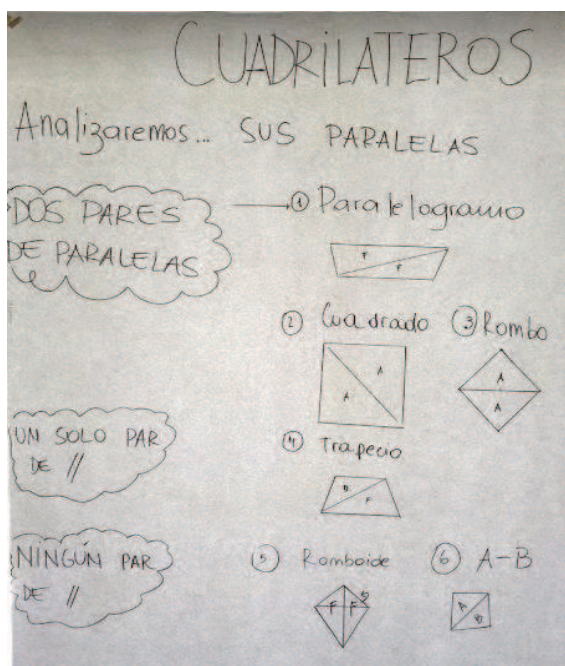 CUADRILATEROS
Analizaremos... SUS PARALELAS
DOS PARES
DE PARALELAS
① Paralelogramo
F
F
② Cuadrado ③ Rombo
A
A
A
A
UN SOLO PAR
DE //
④ Trapecio
D
F
NINGÚN PAR
DE //
⑤ Romboide ⑥ A-B
F F
A
B